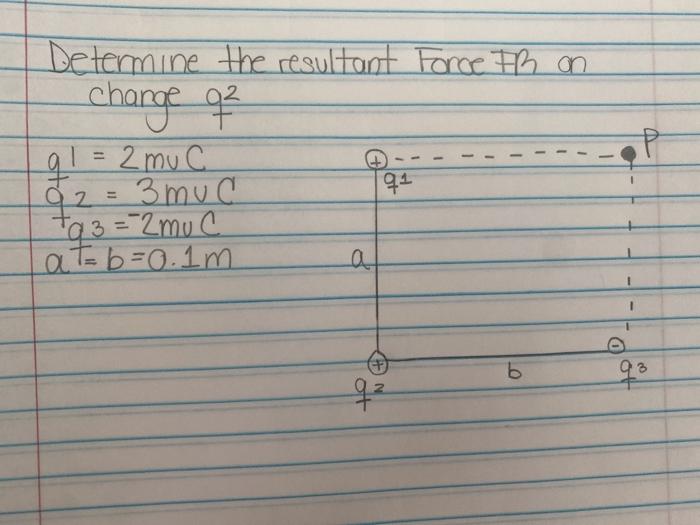 Determine the resultant Force FR on
change q2
q1 = 2muC
q2 = 3muC
q3 = -2muC
a = b = 0.1m
+ P
q1
a
+ -
b
q2 q3